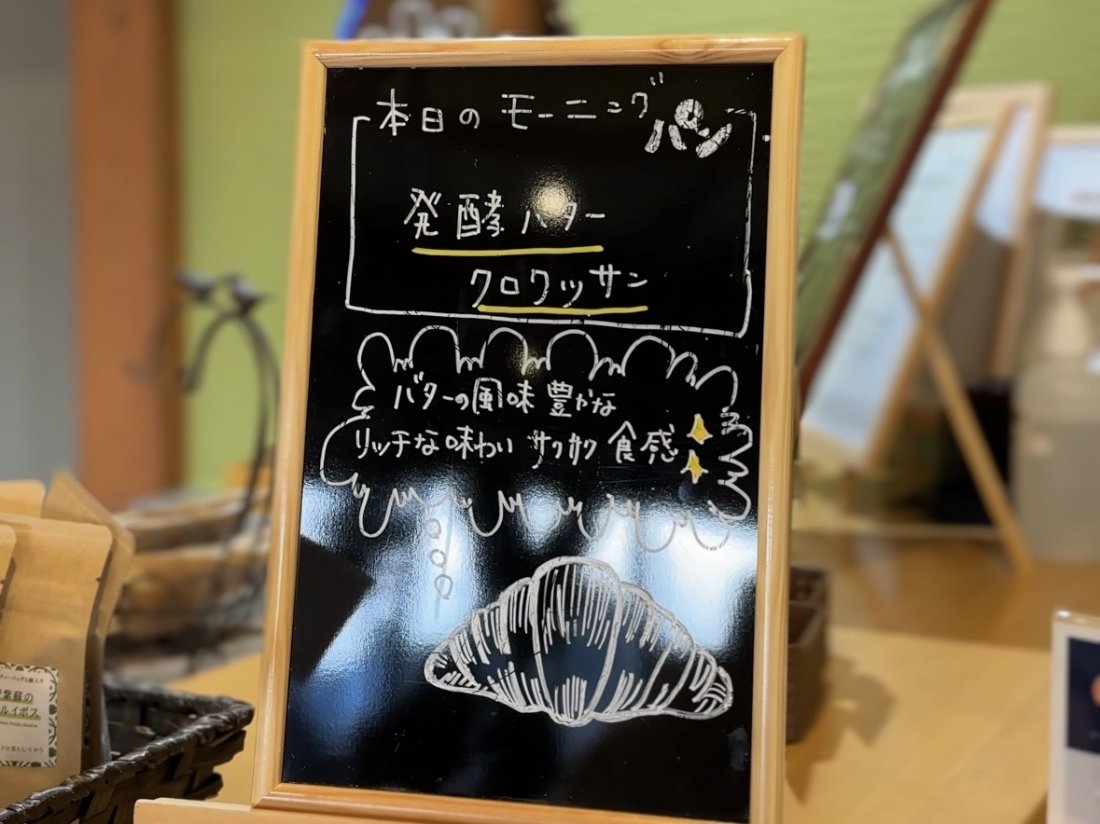 本日のモーニングパン
発酵バター
クロワッサン
バターの風味豊かな
リッチな味わいサクサク食感
紫蘇の
ルイボス